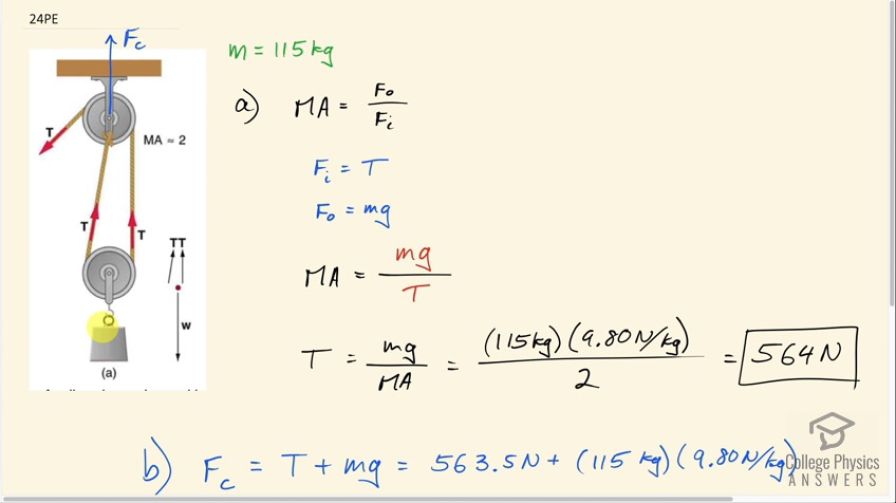 24PE
F_c
m = 115 kg
a) MA = F_o / F_i
T
MA ≈ 2
F_i = T
F_o = mg
T T
TT
MA = mg / T
W
T = mg / MA = (115 kg)(9.80 N/kg) / 2 = 564 N
(a)
b) F_c = T + mg = 563.5 N + (115 kg)(9.80 N/kg)
College Physics
ANSWERS